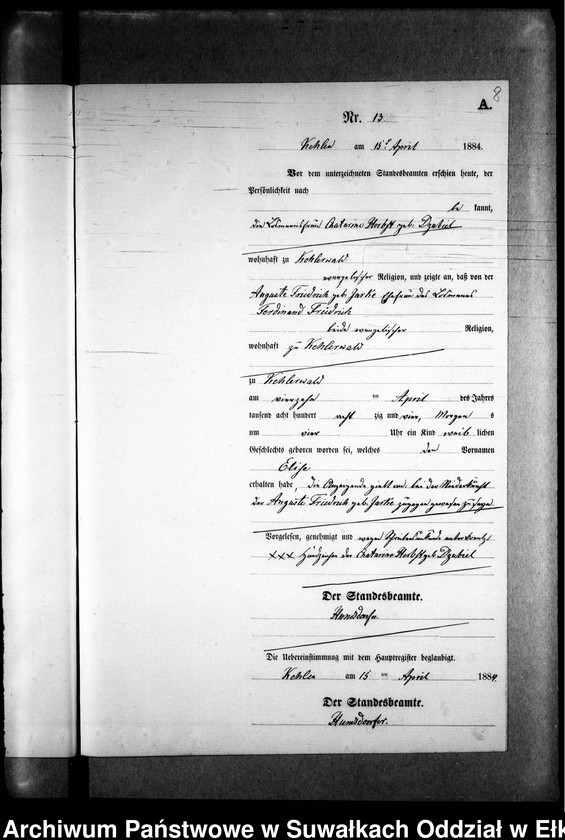 8
A.
Nr. 13.
Kehlen am 15t April 1884.
Vor dem unterzeichneten Standesbeamten erschien heute, der
Persönlichkeit nach
be kannt,
die Losmannsfrau Chatarine Herbst geb. Dzubiel
wohnhaft zu Kehlerwald
evangelischer Religion, und zeigte an, daß von der
Auguste Friedrich geb. Jarke Ehefrau des Losmannes
Ferdinand Friedrich
beide evangelischer Religion,
wohnhaft zu Kehlerwald
zu Kehlerwald
am vierzehn ten April des Jahres
tausend acht hundert acht zig und vier, Morgen s
um vier Uhr ein Kind weib lichen
Geschlechts geboren worden sei, welches den Vornamen
Elise
erhalten habe, die Anzeigende giebt an, bei der Niederkunft
der Auguste Friedrich geb. Jarke zugegen gewesen zu sein.
Vorgelesen, genehmigt und wegen Schreibensunkunde unterkreuzt
XXX Handzeichen der Chatarine Herbst geb. Dzubiel
Der Standesbeamte.
Humsdorfer.
Die Uebereinstimmung mit dem Hauptregister beglaubigt.
Kehlen am 15 ten April 1884.
Der Standesbeamte.
Humsdorfer.
Archiwum Państwowe w Suwałkach Oddział w Ełk